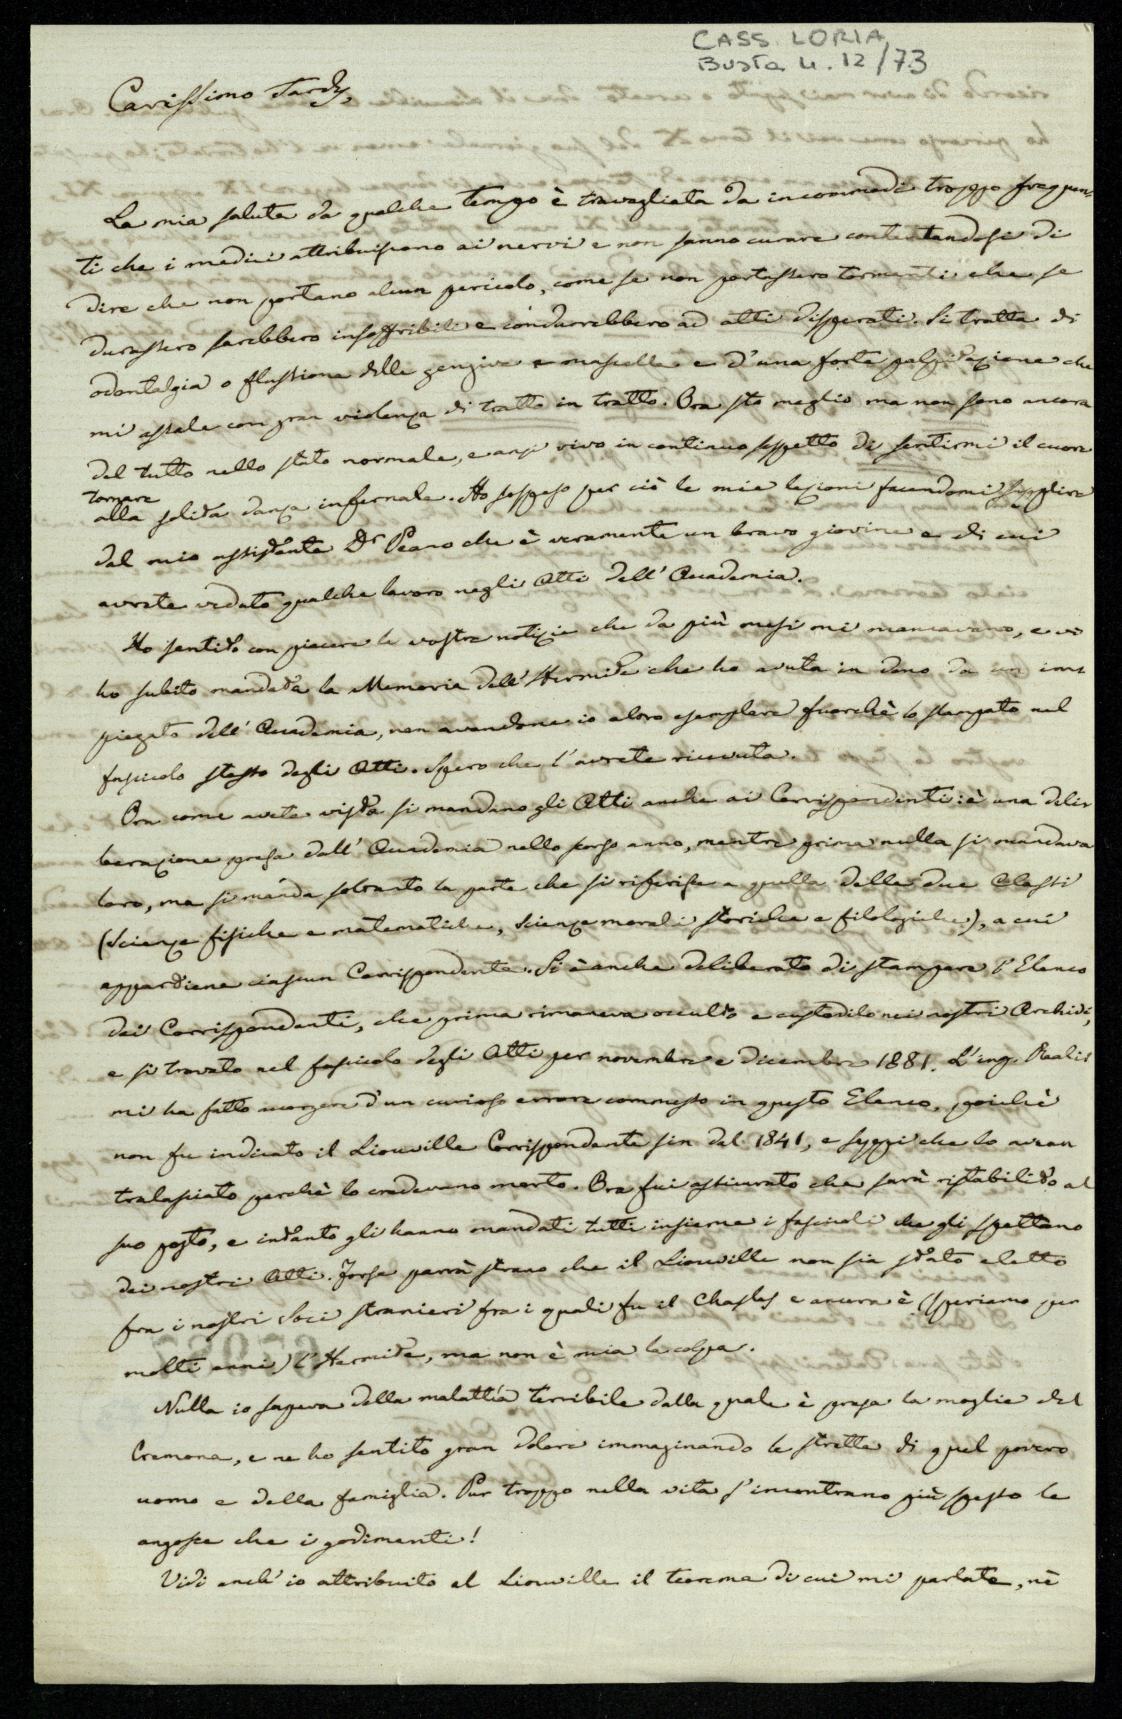 CASS. LORIA
Busta n. 12/73
Carissimo Tardy,
La mia salute da qualche tempo è travagliata da incommodi troppo frequen-
ti che i medici attribuiscono ai nervi e non sanno curare contentandosi di
dire che non portano alcun pericolo, come se non portassero tormenti che se
durassero sarebbero insoffribili e condurrebbero ad atti disperati. Si tratta di
odontalgia o flussione delle gengive e mascelle e d'una forte palpitazione che
mi assale con gran violenza di tratto in tratto. Ora sto meglio ma non sono ancora
del tutto nello stato normale, e anzi vivo in continuo sospetto di sentirmi il cuore
tornare
alla solita danza infernale. Ho sospeso per ciò le mie lezioni facendomi supplire
dal mio assistente Dr Peano che è veramente un bravo giovine e di cui
avrete veduto qualche lavoro negli Atti dell'Accademia.
Ho sentito con piacere le vostre notizie che da più mesi mi mancavano, e vi
ho subito mandata la Memoria dell'Hermite che ho avuta in dono da un im-
piegato dell'Accademia, non avendone io altro esemplare fuorchè lo stampato nel
fascicolo stesso degli Atti. Spero che l'avrete ricevuta.
Ora come avete visto si mandano gli Atti anche ai Corrispondenti: è una deli-
berazione presa dall'Accademia nello scorso anno, mentre prima nulla si mandava
loro, ma si manda soltanto la parte che si riferisce a quella delle due Classi
(Scienze fisiche e matematiche, Scienze morali storiche e filologiche), a cui
appartiene ciascun Corrispondente. Si è anche deliberato di stampare l'Elenco
dei Corrispondenti, che prima rimaneva occulto e custodito nei nostri Archivi,
e si trovato nel fascicolo degli Atti per novembre e dicembre 1881. L'ing. Realis
mi ha fatto accorgere d'un curioso errore commesso in questo Elenco, poichè
non fu indicato il Liouville Corrispondente sin dal 1841, e seppi che lo avean
tralasciato perchè lo credevano morto. Ora fui assicurato che sarà ristabilito al
suo posto, e intanto gli hanno mandati tutti insieme i fascicoli che gli spettano
dei nostri Atti. Forse parrà strano che il Liouville non sia stato eletto
fra i nostri Soci stranieri fra i quali fu il Chasles e ancora è (speriamo per
molti anni) l'Hermite, ma non è mia la colpa.
Nulla io sapeva della malattia terribile dalla quale è presa la moglie del
Cremona, e ne ho sentito gran dolore immaginando le strette di quel povero
uomo e della famiglia. Pur troppo nella vita s'incontrano più spesso le
angosce che i godimenti!
Vidi anch'io attribuito al Liouville il teorema di cui mi parlate, nè